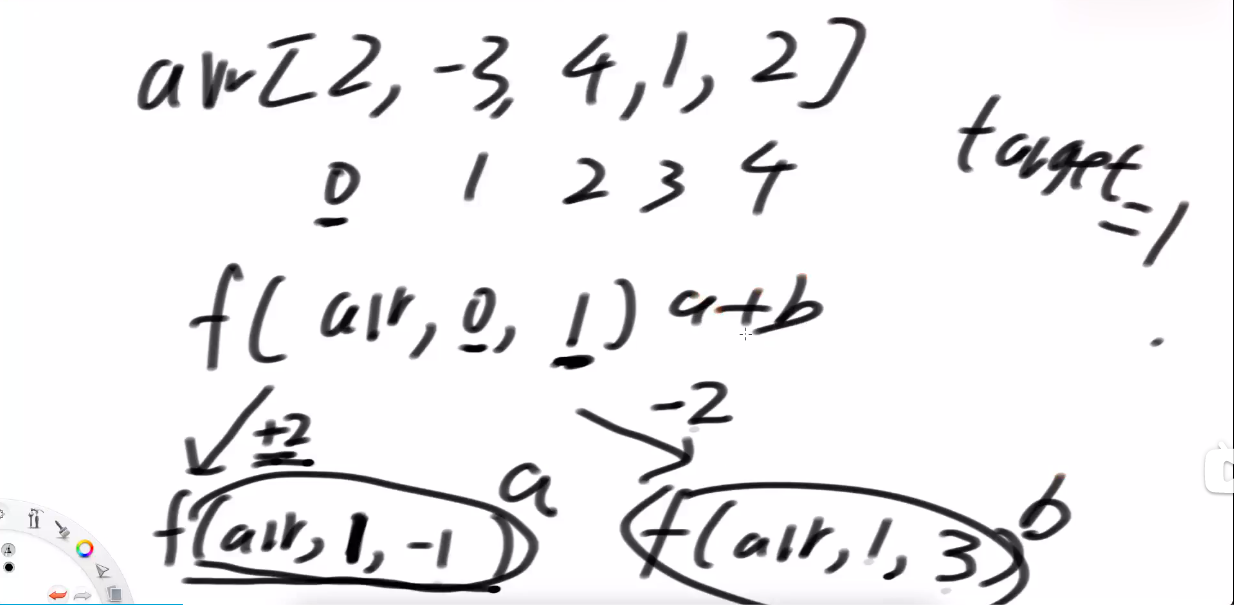 arr[2, -3, 4, 1, 2]
0 1 2 3 4
target=1
f(arr, 0, 1) a+b
+2 -2
f(arr, 1, -1) a f(arr, 1, 3) b